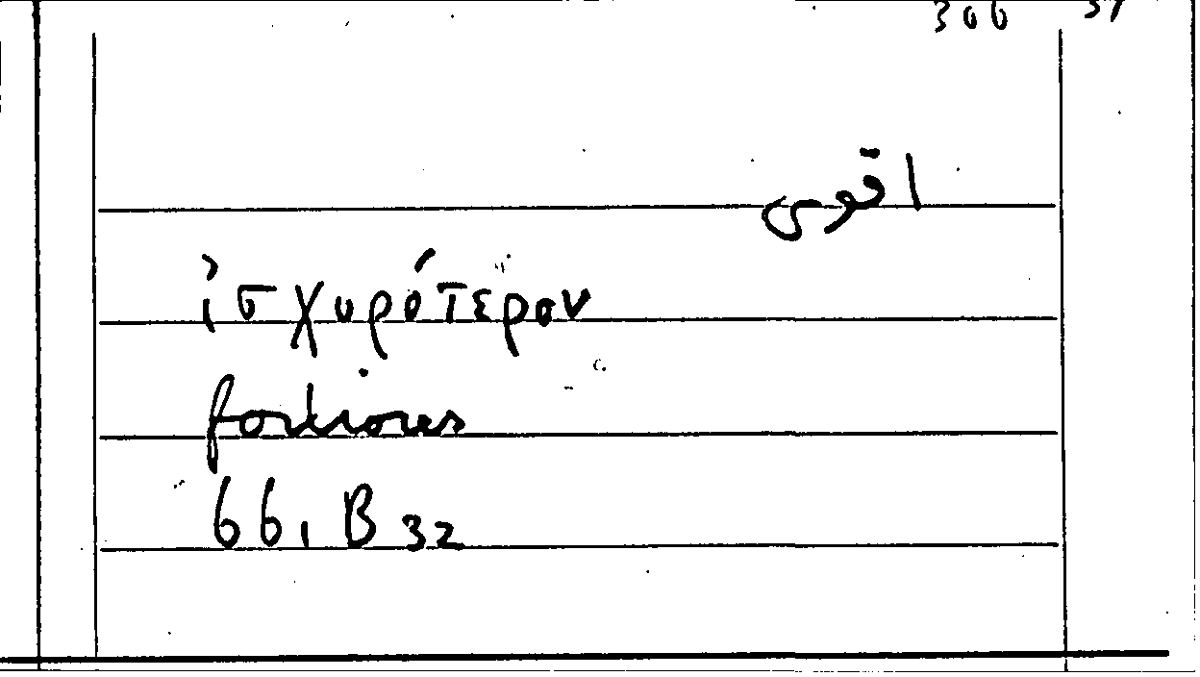 306
اقوى
ἰσχυρότερον
fortiores
66, B 32